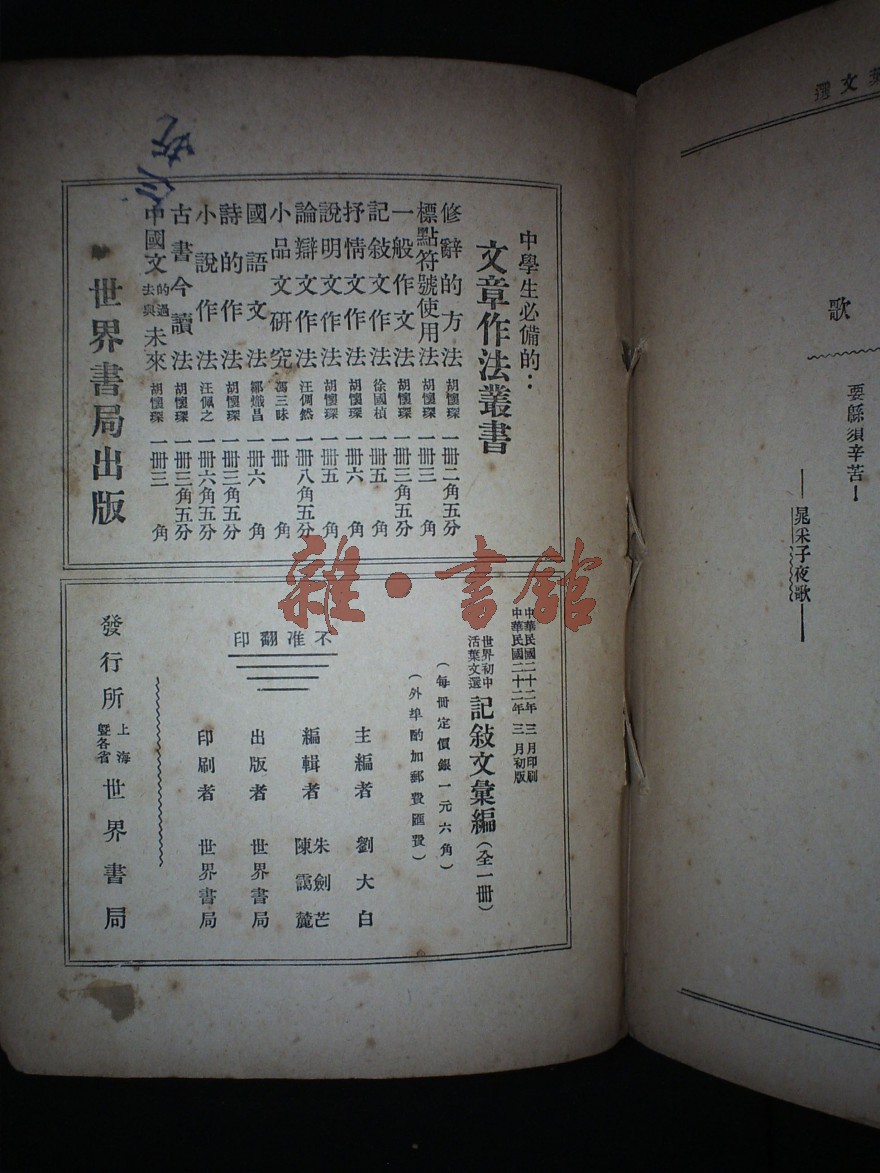 中學生必備的：
文章作法叢書
修辭的方法 胡懷琛 一冊二角五分
標點符號使用法 胡懷琛 一冊三角
一般作文法 胡懷琛 一冊三角五分
記敍文作法 徐國楨 一冊五角
抒情文作法 胡懷琛 一冊六角
說明文作法 胡懷琛 一冊五角
論辯文作法 汪倜然 一冊八角五分
小品文研究 馮三昧 一冊角
國語文法 鄒熾昌 一冊六角
詩的作法 胡懷琛 一冊三角五分
小說作法 汪佩之 一冊六角五分
古書今讀法 胡懷琛 一冊三角五分
中國文的過去與未來 胡懷琛 一冊三角
世界書局出版
中華民國二十二年三月印刷
中華民國二十二年三月初版
世界初中活葉文選 記敍文彙編（全一冊）
（每冊定價銀一元六角）
（外埠酌加郵費匯費）
主編者 劉大白
編輯者 朱劍芒 陳靄麓
出版者 世界書局
印刷者 世界書局
不准翻印
發行所 上海暨各省 世界書局
雜·書館
葉文選
歌
要緜須辛苦！
——晁采子夜歌——